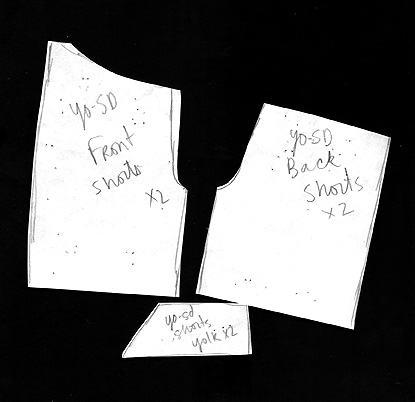 yo-SD
Front
shorts
x2
yo-SD
Back
shorts
x2
yo-sd
shorts
yolk x2